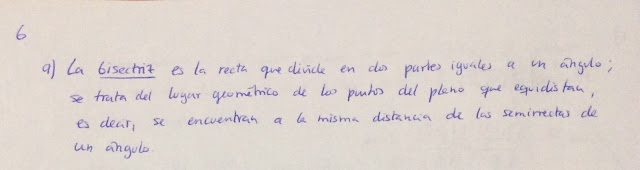 6
a) La bisectriz es la recta que divide en dos partes iguales a un ángulo;
se trata del lugar geométrico de los puntos del plano que equidistan,
es decir, se encuentran a la misma distancia de las semirrectas de
un ángulo.